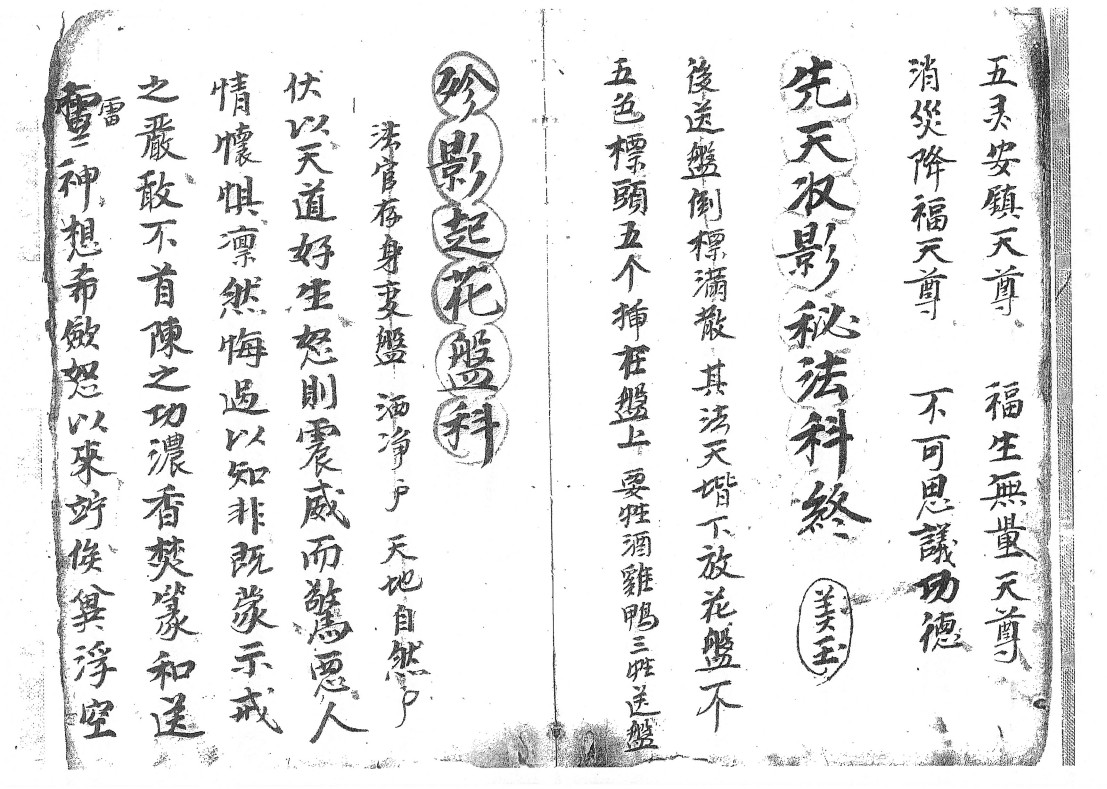 五灵安鎮天尊　福生無量天尊
消災降福天尊　不可思議功德
先天收影秘法科終
美玉
後送盤倒標滿散　其法天堦下放花盤不
五色標頭五个揷在盤上　要牲酒雞鴨三牲送盤
殄影起花盤科
法官存身变盤　洒净户　天地自然户
伏以天道好生怒則震威而驚惡人
情懷惧凛然悔過以知非既蒙示戒
之嚴敢不首陳之功濃香焚篆和送
雷
雷二神想希歛怒以來竚俟兾浮空